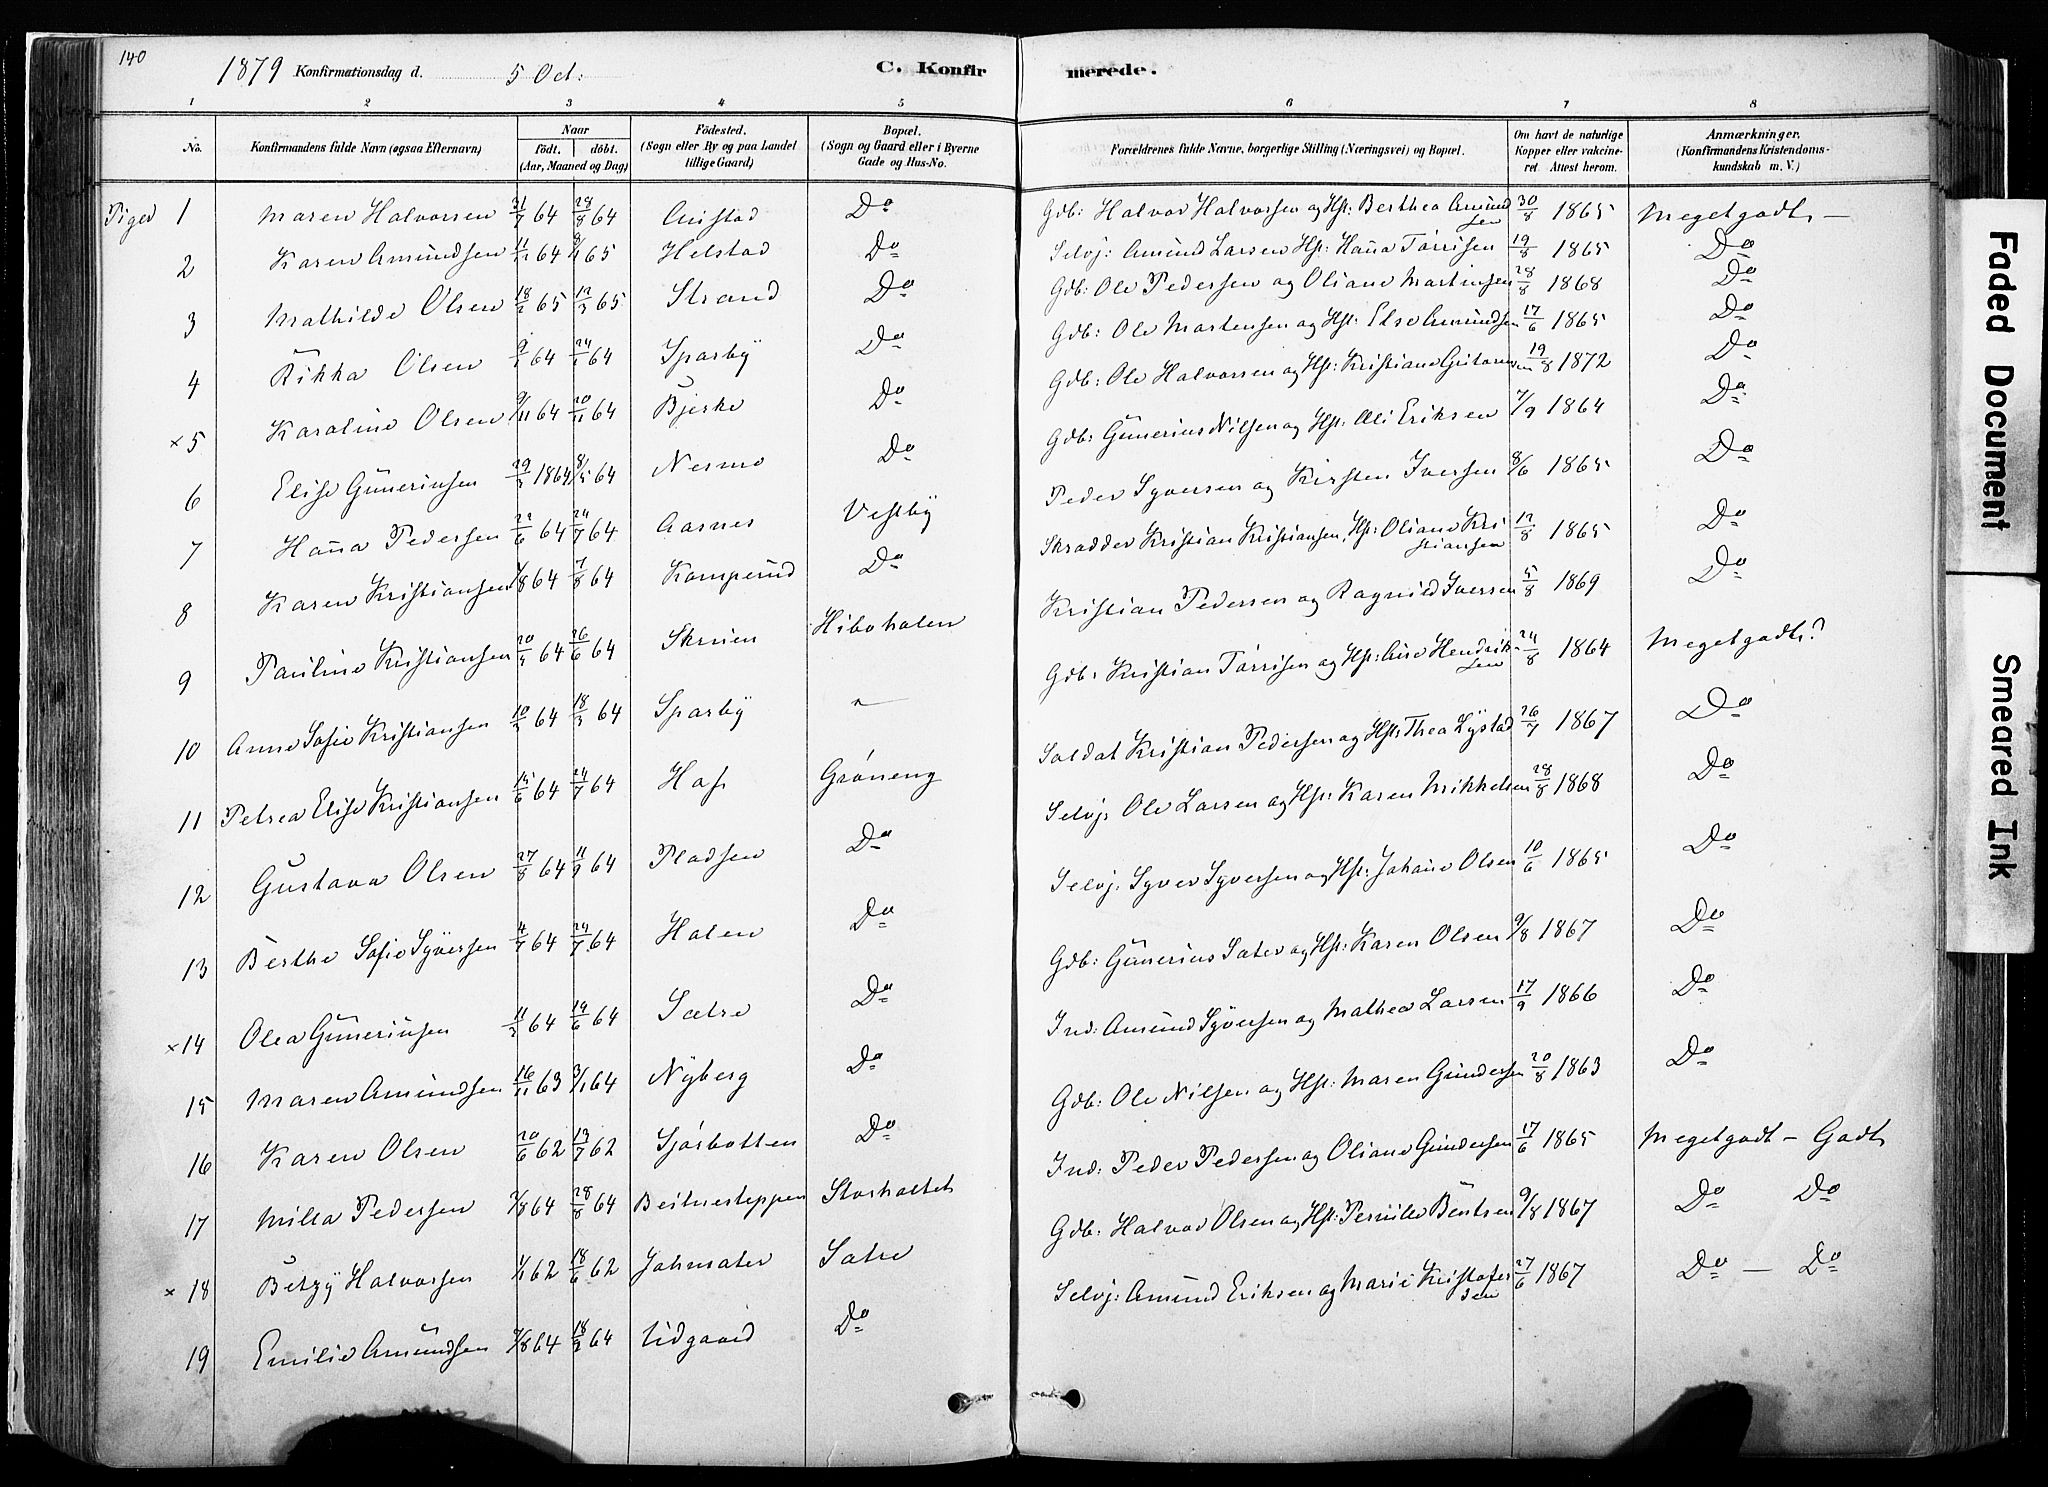 140
1879 Konfirmationsdag d. 5 Oct:
C. Konfirmerede.
1 2 3 4 5 6 7 8
No.
Konfirmandens fulde Navn (ogsaa Efternavn)
Naar
födt. döbt.
(Aar, Maaned og Dag)
Födested.
(Sogn eller By og paa Landet
tillige Gaard)
Bopæl.
(Sogn og Gaard eller i Byerne
Gade og Hus-No.
Forældrenes fulde Navne, borgerlige Stilling (Næringsvei) og Bopæl.
Om havt de naturlige
Kopper eller vakcine-
ret Attest herom.
Anmærkninger.
(Konfirmandens Kristendoms-
kundskab m. V.)
Piger 1 Maren Halvorsen 31/7 64 28/8 64 Do Gdb: Halvor Halvorsen og Hst: Berthea Amundsen 30/8 1865 Megetgodt –
2 Karen Amundsen 64 65 Helstad Do Selvj: Amund Larsen Hst: Hanna Törrisen 19/8 1865 Do
3 Mathilde Olsen 65 65 Strand Do Gdb: Ole Pedersen og Oliane Martinsen 28/8 1868 Do
4 Rikka Olsen 64 64 Sparby Do Gdb: Ole Martensen og Hst: Else Amundsen 17/6 1865 Do
× 5 Karoline Olsen 9/11 64 20/11 64 Bjerke Do Gdb: Ole Halvorsen og Hst: Kristiane 19/8 1872 Do
6 Elise Gunerinsen 1864 8/5 64 Nermo Do Gdb: Gunerius Nilsen og Hst: Eriksen 7/9 1864 Do
7 Hanna Pedersen 64 24/7 64 Aasnes Vestby Peder Syversen og Kirsten Iversen 8/6 1865 Do
8 Karen Kristiansen 64 7/8 64 Kamperud Do Skrædder Kristian Kristiansen, Hst: Oliane Kristiansen 12/8 1865 Do
9 Pauline Kristiansen 64 26/6 64 Hiboholen Kristian Pedersen og Ragnild Iversen 5/8 1869 Do
10 Anne Sofie Kristiansen 64 64 Sparby " Gdb: Kristian Törrisen og Hst: Hendriksen 24/8 1864 Megetgodt?
11 Petrea Elise Kristiansen 15/6 64 24/7 64 Hof Gröneng Soldat Kristian Pedersen og Hst: Thea Lystad 26/7 1867 Do
12 Gustava Olsen 27/8 64 11/9 64 Pladsen Do Selvj: Ole Larsen og Hst: Karen Mikkelsen 28/8 1868 Do
13 Berthe Sofie Syversen 4/7 64 24/7 64 Holen Do Selvj: Syver Syversen og Hst: Johane Olsen 10/6 1865 Do
× 14 Olea Gunerinsen 64 19/6 64 Sætre Do Gdb: Gunerius Sæter og Hst: Karen Olsen 9/8 1867 Do
15 Maren Amundsen 16/11 63 3/1 64 Nyberg Do Ind: Amund Syversen og Mathea Larsen 17/9 1866 Do
16 Karen Olsen 20/6 62 13/7 62 Sjörbotten Do Gdb: Ole Nilsen og Hst: Maren Gundersen 20/8 1863 Do
17 Milla Pedersen 64 28/8 64 Beitnesteppen Storholtet Ind: Peder Pedersen og Oliane Gundersen 17/6 1865 Megetgodt – Godt
× 18 Betzy Halvorsen 62 18/6 62 Sætre Gdb: Halvor Olsen og Hst: Pernille Bentsen 9/8 1867 Do Do
19 Emilie Amundsen 64 64 Udgaard Do Selvj: Amund Eriksen og Marie Kristofersen 27/6 1867 Do – Do
Faded Document
Smeared Ink